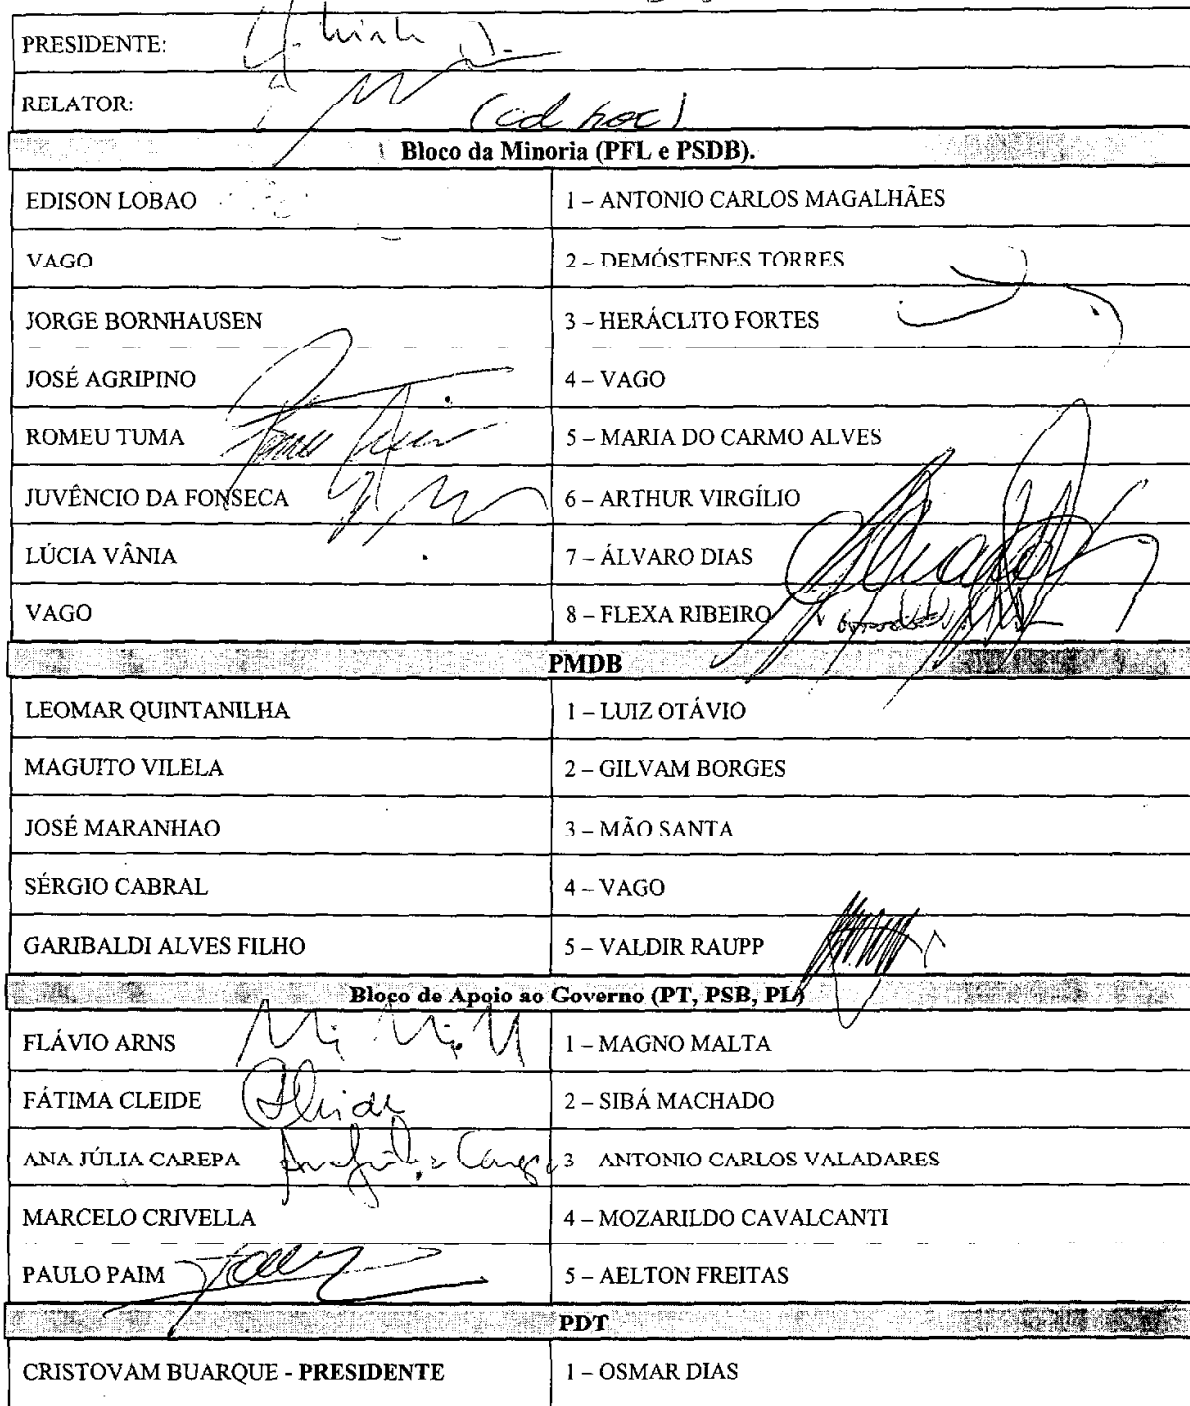 PRESIDENTE:
RELATOR: (ad hoc)
Bloco da Minoria (PFL e PSDB).
EDISON LOBAO 1 – ANTONIO CARLOS MAGALHÃES
VAGO 2 – DEMÓSTENES TORRES
JORGE BORNHAUSEN 3 – HERÁCLITO FORTES
JOSÉ AGRIPINO 4 – VAGO
ROMEU TUMA 5 – MARIA DO CARMO ALVES
JUVÊNCIO DA FONSECA 6 – ARTHUR VIRGÍLIO
LÚCIA VÂNIA 7 – ÁLVARO DIAS
VAGO 8 – FLEXA RIBEIRO
PMDB
LEOMAR QUINTANILHA 1 – LUIZ OTÁVIO
MAGUITO VILELA 2 – GILVAM BORGES
JOSÉ MARANHAO 3 – MÃO SANTA
SÉRGIO CABRAL 4 – VAGO
GARIBALDI ALVES FILHO 5 – VALDIR RAUPP
Bloco de Apoio ao Governo (PT, PSB, PL)
FLÁVIO ARNS 1 – MAGNO MALTA
FÁTIMA CLEIDE 2 – SIBÁ MACHADO
ANA JÚLIA CAREPA 3 ANTONIO CARLOS VALADARES
MARCELO CRIVELLA 4 – MOZARILDO CAVALCANTI
PAULO PAIM 5 – AELTON FREITAS
PDT
CRISTOVAM BUARQUE - PRESIDENTE 1 – OSMAR DIAS